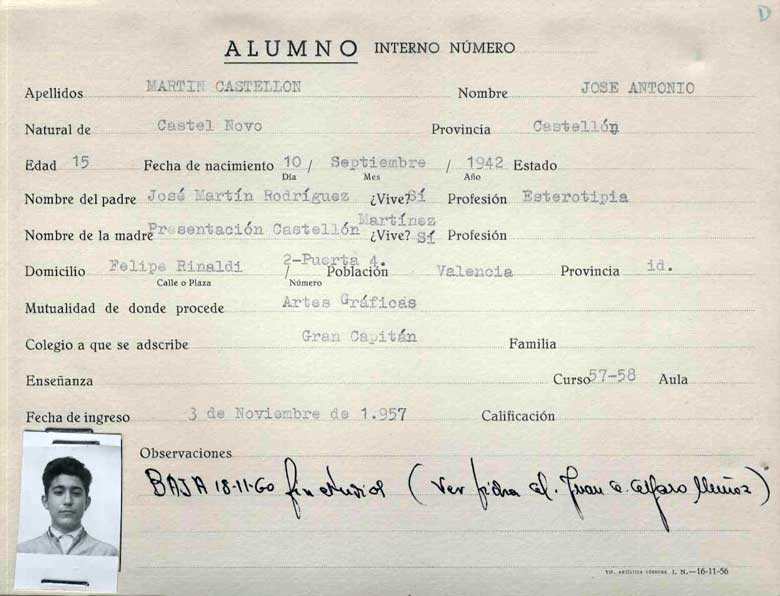 D
ALUMNO INTERNO NÚMERO
Apellidos MARTIN CASTELLON Nombre JOSE ANTONIO
Natural de Castel Novo Provincia Castellón
Edad 15 Fecha de nacimiento 10 / Septiembre / 1942 Estado
Día Mes Año
Nombre del padre José Martín Rodríguez ¿Vive? Sí Profesión Esterotipia
Nombre de la madre Presentación Castellón Martínez ¿Vive? Sí Profesión
Domicilio Felipe Rinaldi / 2-Puerta 4. Población Valencia Provincia id.
Calle o Plaza Número
Mutualidad de donde procede Artes Gráficas
Colegio a que se adscribe Gran Capitán Familia
Enseñanza Curso 57-58 Aula
Fecha de ingreso 3 de Noviembre de 1.957 Calificación
Observaciones
BAJA 18-11-60 fin (Ver ficha al. Juan a. Alfaro Muñoz)
TIP. ARTÍSTICA CÓRDOBA I. N.—16-11-56